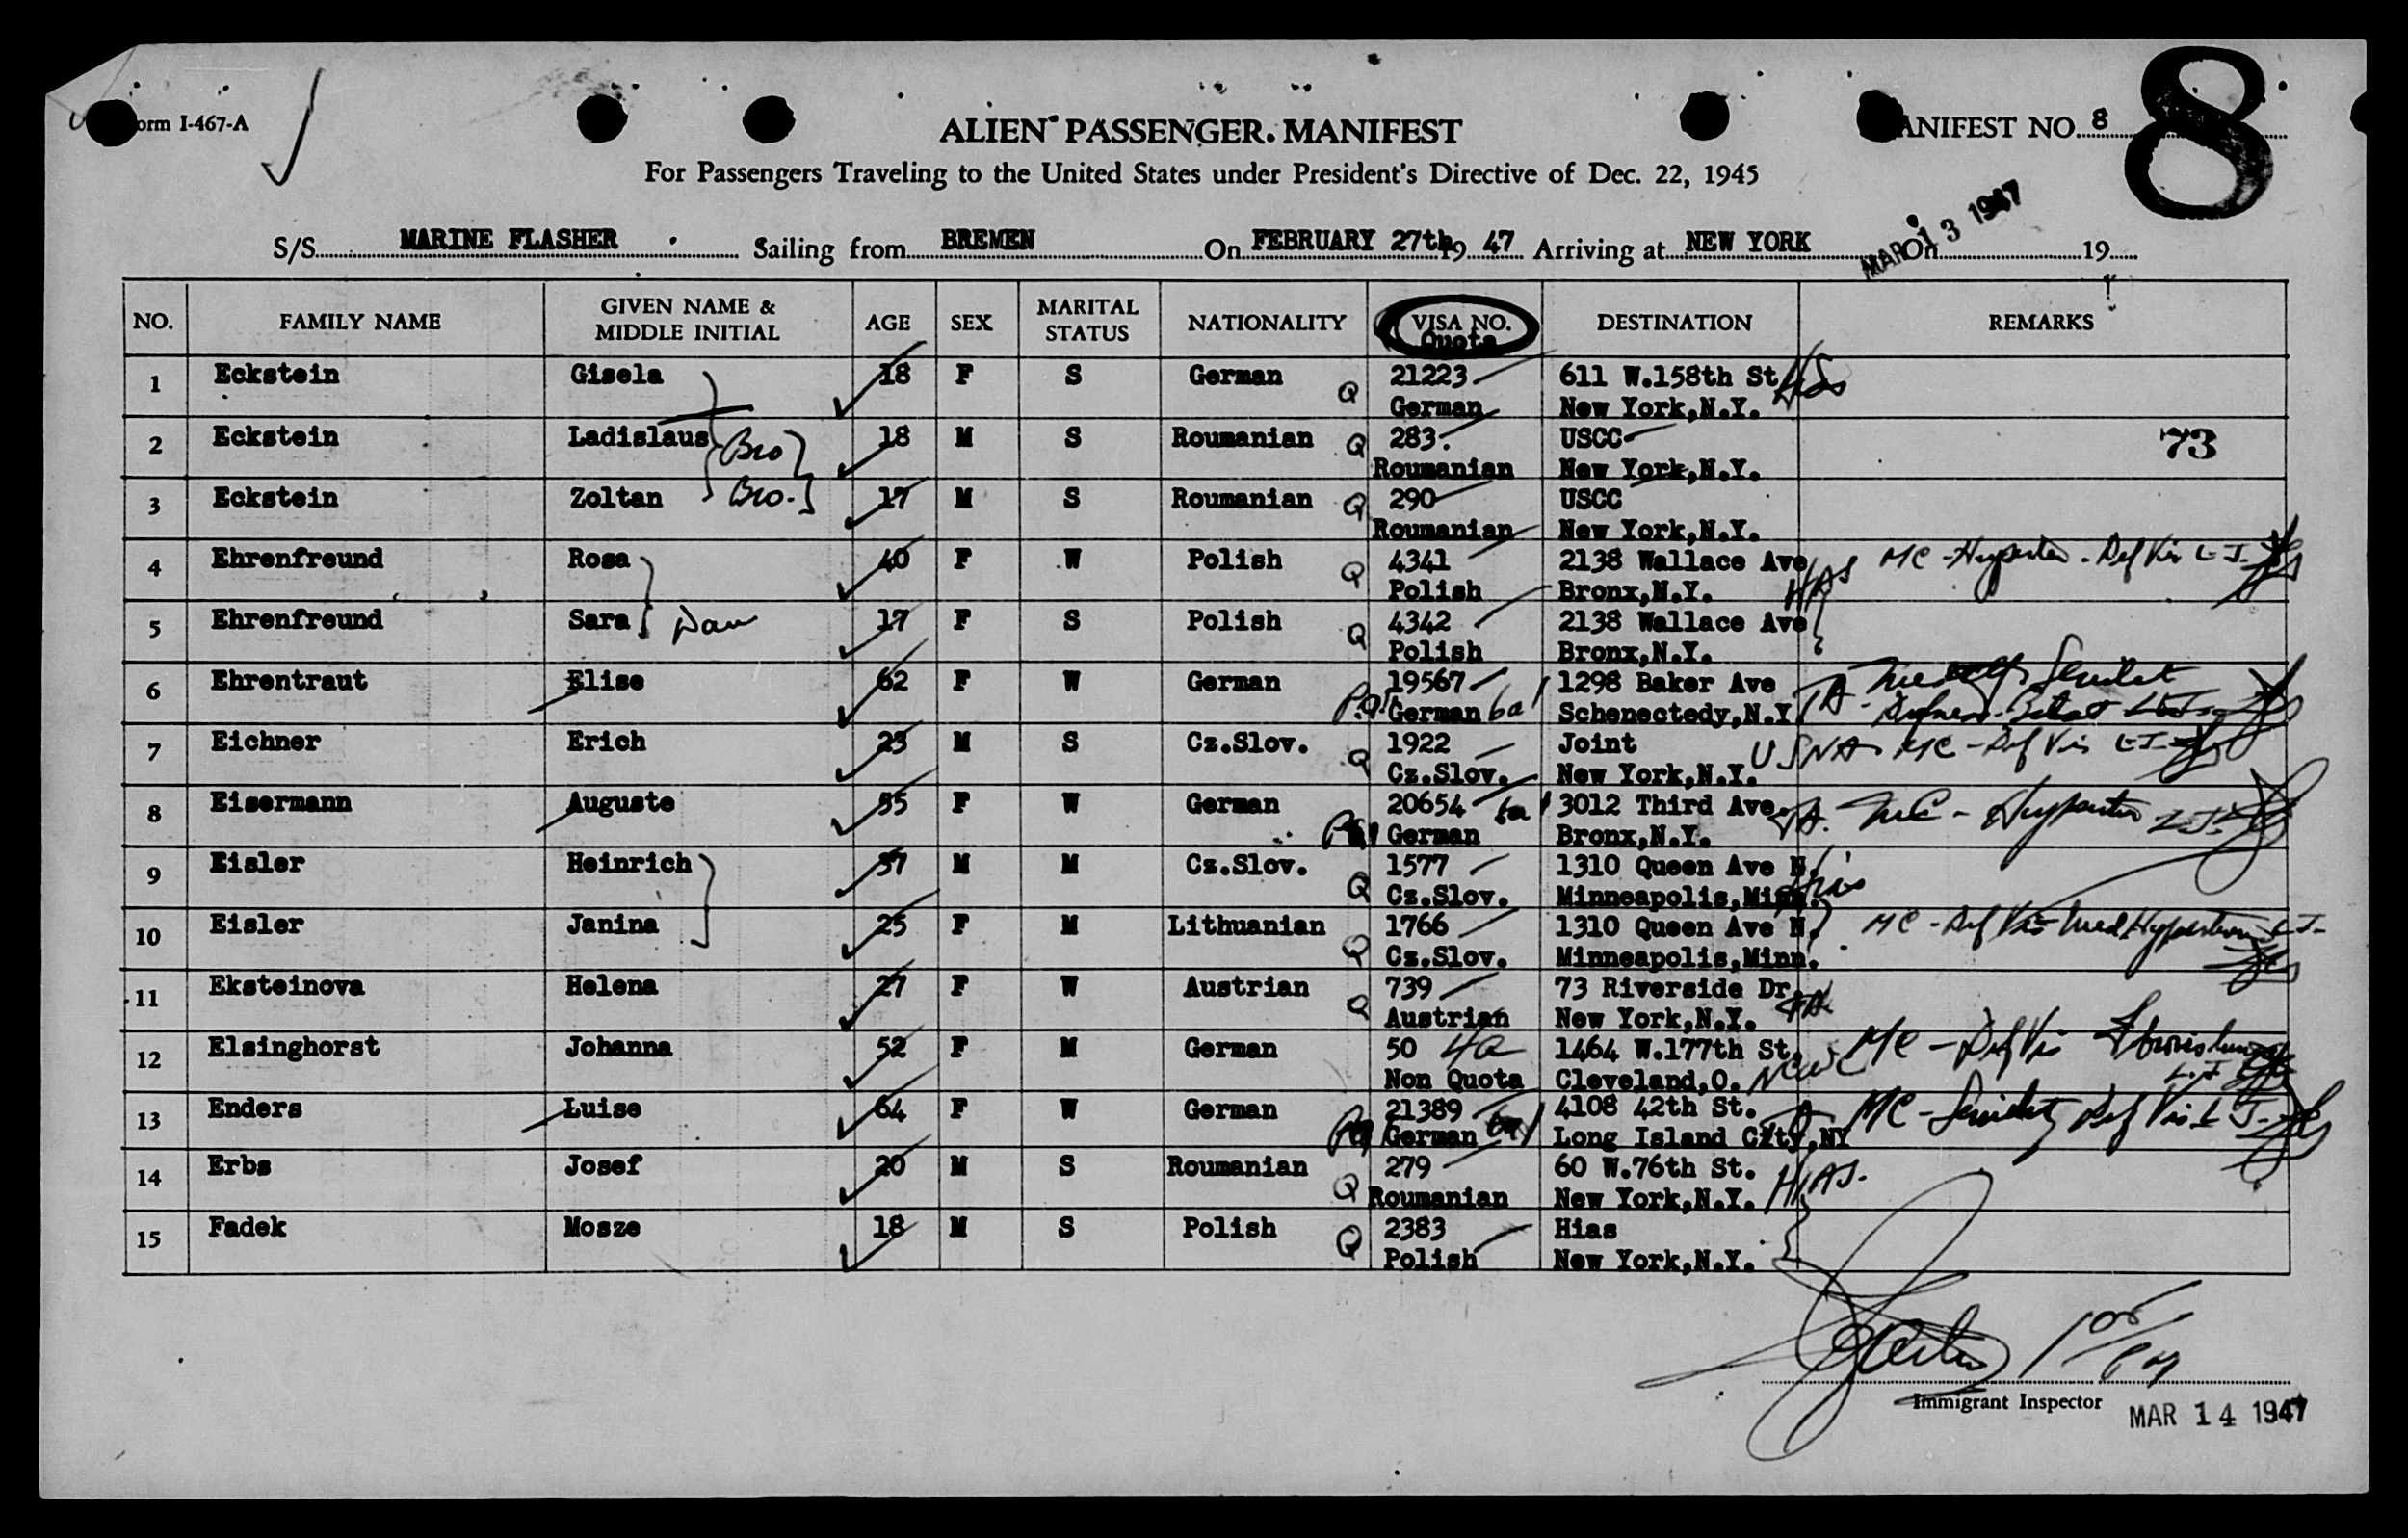 Form I-467-A
ALIEN PASSENGER MANIFEST
MANIFEST NO. 8
8
For Passengers Traveling to the United States under President's Directive of Dec. 22, 1945
MAR 13 1947
S/S MARINE FLASHER Sailing from BREMEN On FEBRUARY 27th 19 47 Arriving at NEW YORK On 19
NO. FAMILY NAME GIVEN NAME & MIDDLE INITIAL AGE SEX MARITAL STATUS NATIONALITY VISA NO. Quota DESTINATION REMARKS
1 Eckstein Gisela 18 F S German Q 21223 611 W.158th St
German New York,N.Y.
2 Eckstein Ladislaus Bro 18 M S Roumanian Q 283. USCC 73
Roumanian New York,N.Y.
3 Eckstein Zoltan Bro. 17 M S Roumanian Q 290 USCC
Roumanian New York,N.Y.
4 Ehrenfreund Rosa 40 F W Polish Q 4341 2138 Wallace Ave MC - Def Vis L I
Polish Bronx,N.Y. HIAS
5 Ehrenfreund Sara Dau 17 F S Polish Q 4342 2138 Wallace Ave
Polish Bronx,N.Y.
6 Ehrentraut Elise 62 F W German 19567 1298 Baker Ave
German 6a1 Schenectedy,N.Y.
7 Eichner Erich 23 M S Cz.Slov. Q 1922 Joint USNA MC - Def Vis L I
Cz.Slov. New York,N.Y.
8 Eisermann Auguste 55 F W German 20654 6a1 3012 Third Ave.
German Bronx,N.Y.
9 Eisler Heinrich 37 M M Cz.Slov. Q 1577 1310 Queen Ave N.
Cz.Slov. Minneapolis,Minn. Hias
10 Eisler Janina 25 F M Lithuanian Q 1766 1310 Queen Ave N. MC - Def Vis
Cz.Slov. Minneapolis,Minn.
11 Eksteinova Helena 27 F W Austrian Q 739 73 Riverside Dr.
Austrian New York,N.Y.
12 Elsinghorst Johanna 52 F M German 50 4a 1464 W.177th St. MC - Def Vis
Non Quota Cleveland,O. NCWC
13 Enders Luise 64 F W German 21389 4108 42th St. MC - Senility Def Vis L I
German 6a1 Long Island City,NY
14 Erbs Josef 20 M S Roumanian Q 279 60 W.76th St.
Roumanian New York,N.Y. HIAS.
15 Fadek Mosze 18 M S Polish Q 2383 Hias
Polish New York,N.Y.
Immigrant Inspector
MAR 14 1947